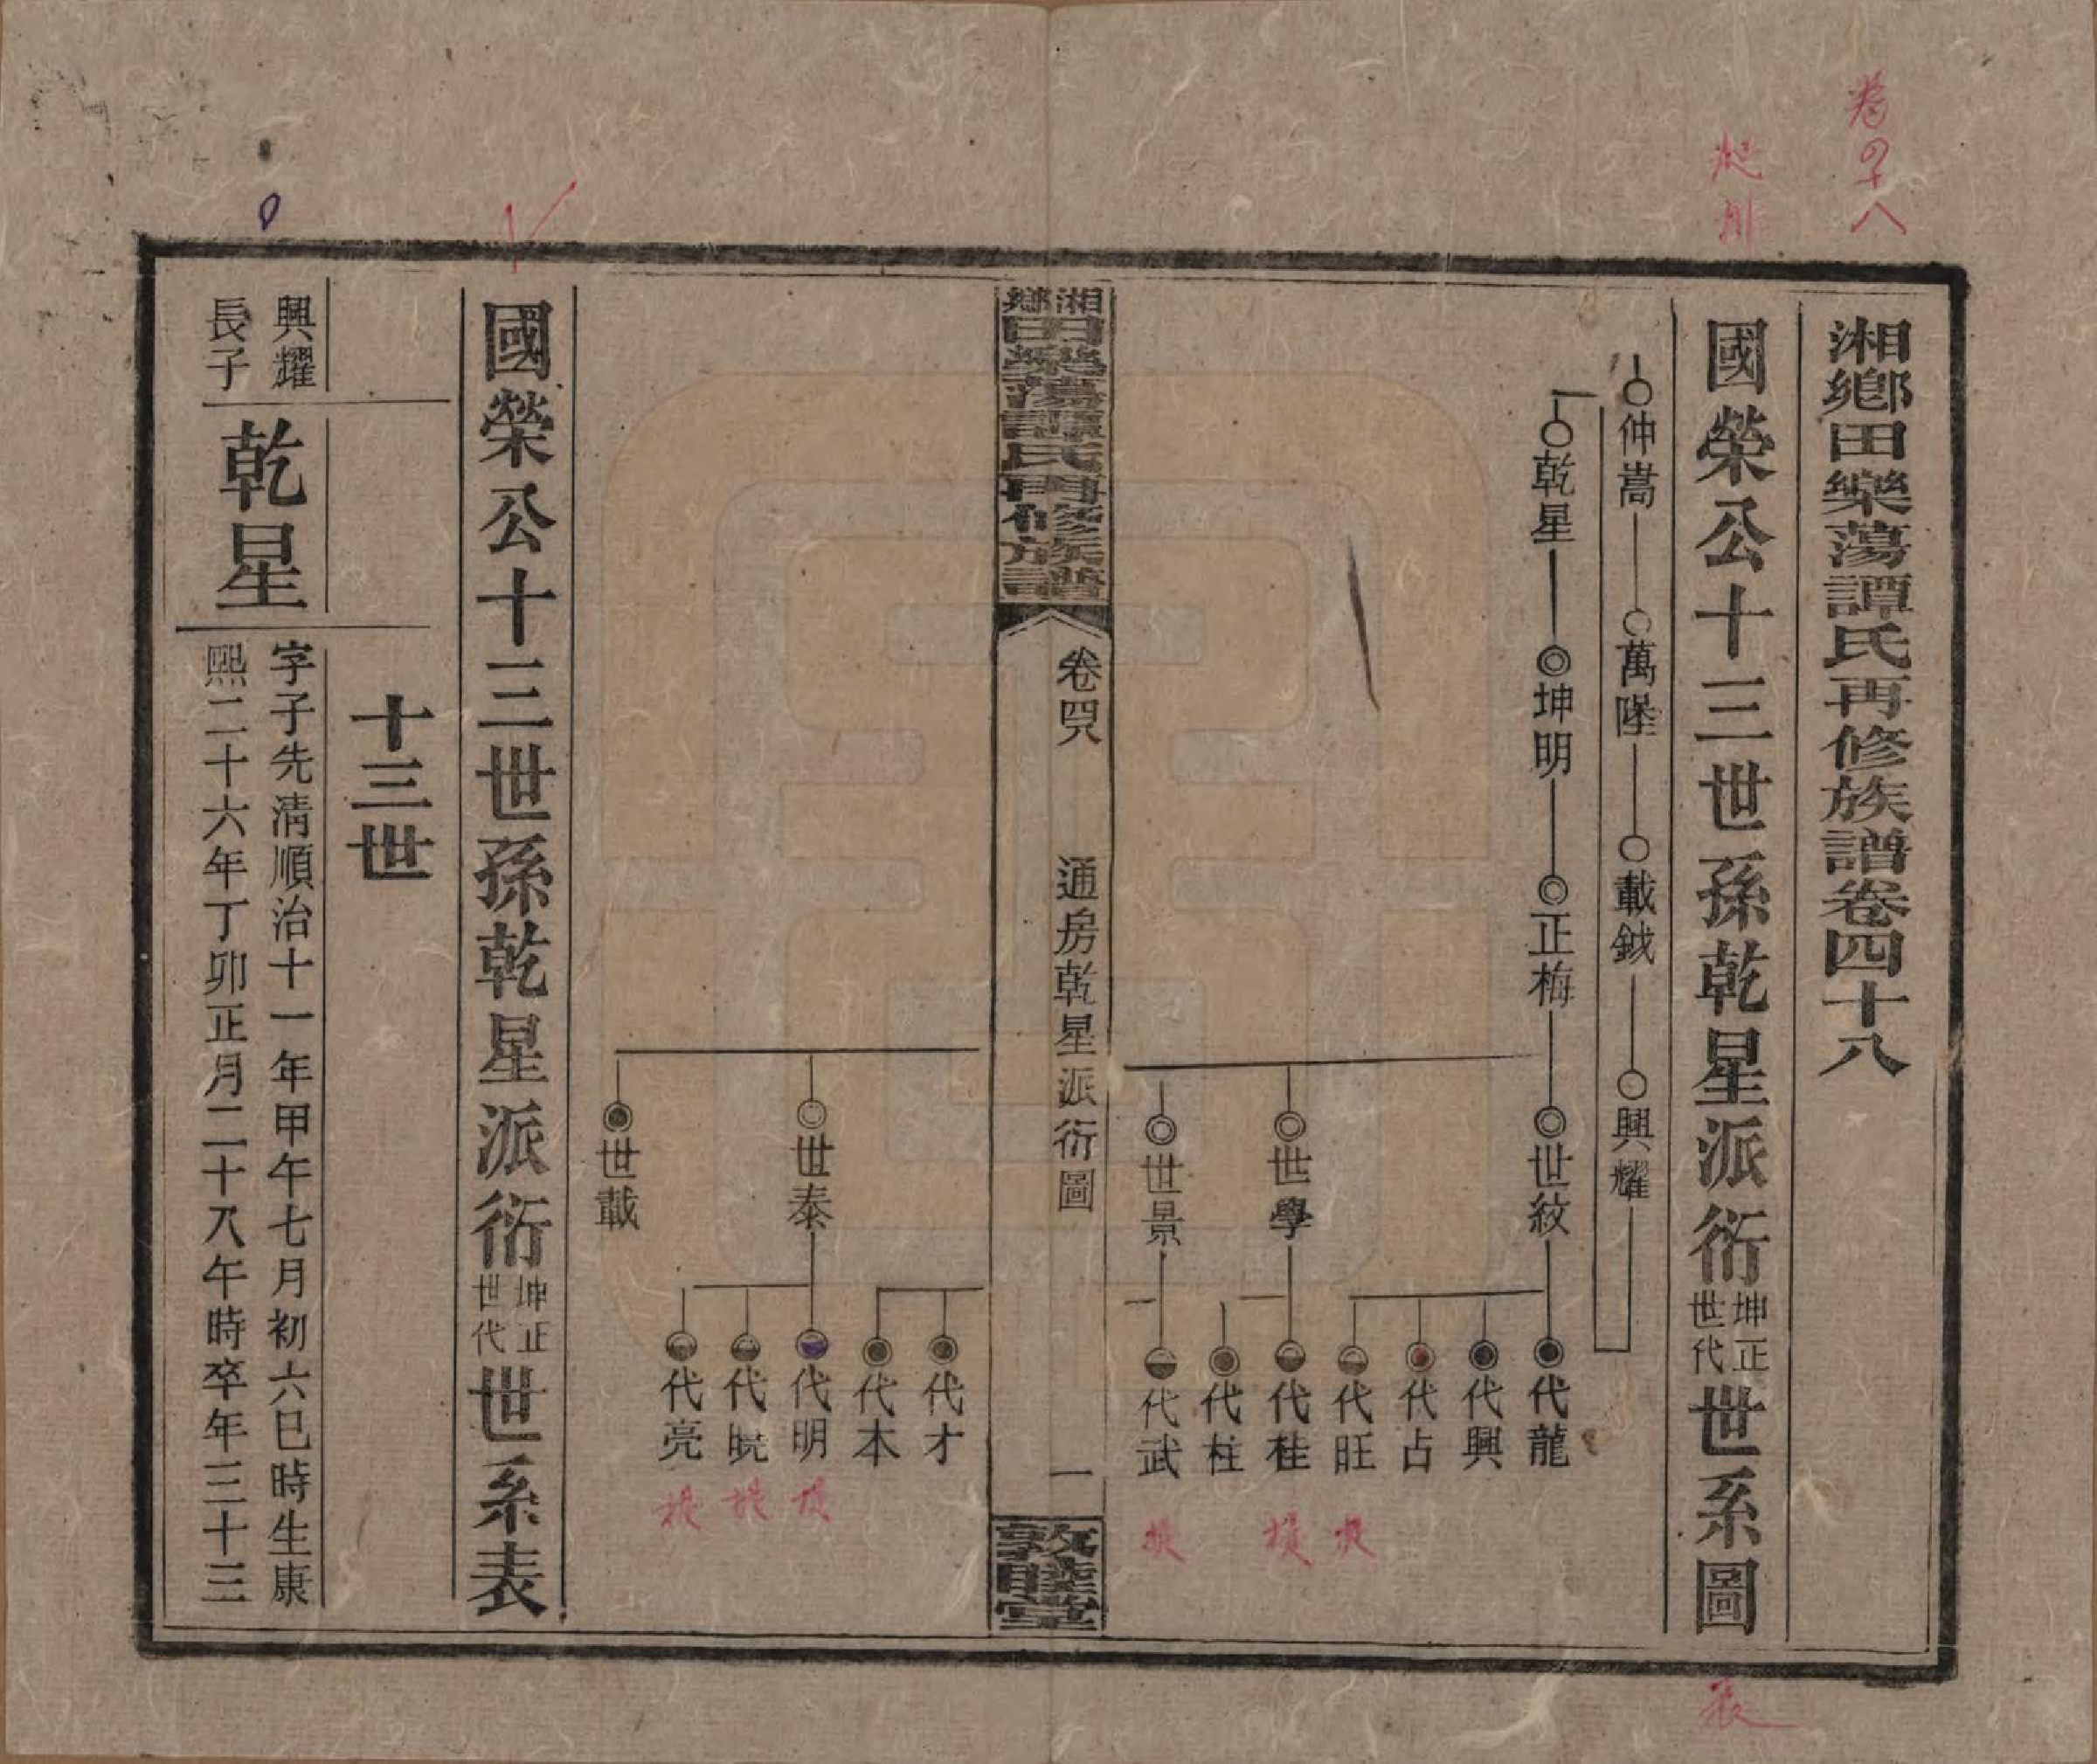 卷四十八
湘鄉田樂蕩譚氏再修族譜卷四十八
國榮公十三世孫乾星派衍坤正世代世系圖
仲嵩 萬墬 載鉞 興耀
乾星 坤明 正梅 世紋 代龍
代興
代占
代旺
世學 代桂
代柱
世景 代武
湘鄉田樂蕩譚氏再修族譜 卷四八 通房乾星派衍圖 一 敦睦堂
代才
代本
世泰 代明
代晥
代亮
世載
國榮公十三世孫乾星派衍坤正世代世系表
十三世
興耀長子
乾星
字子先清順治十一年甲午七月初六巳時生康
熙二十六年丁卯正月二十八午時卒年三十三